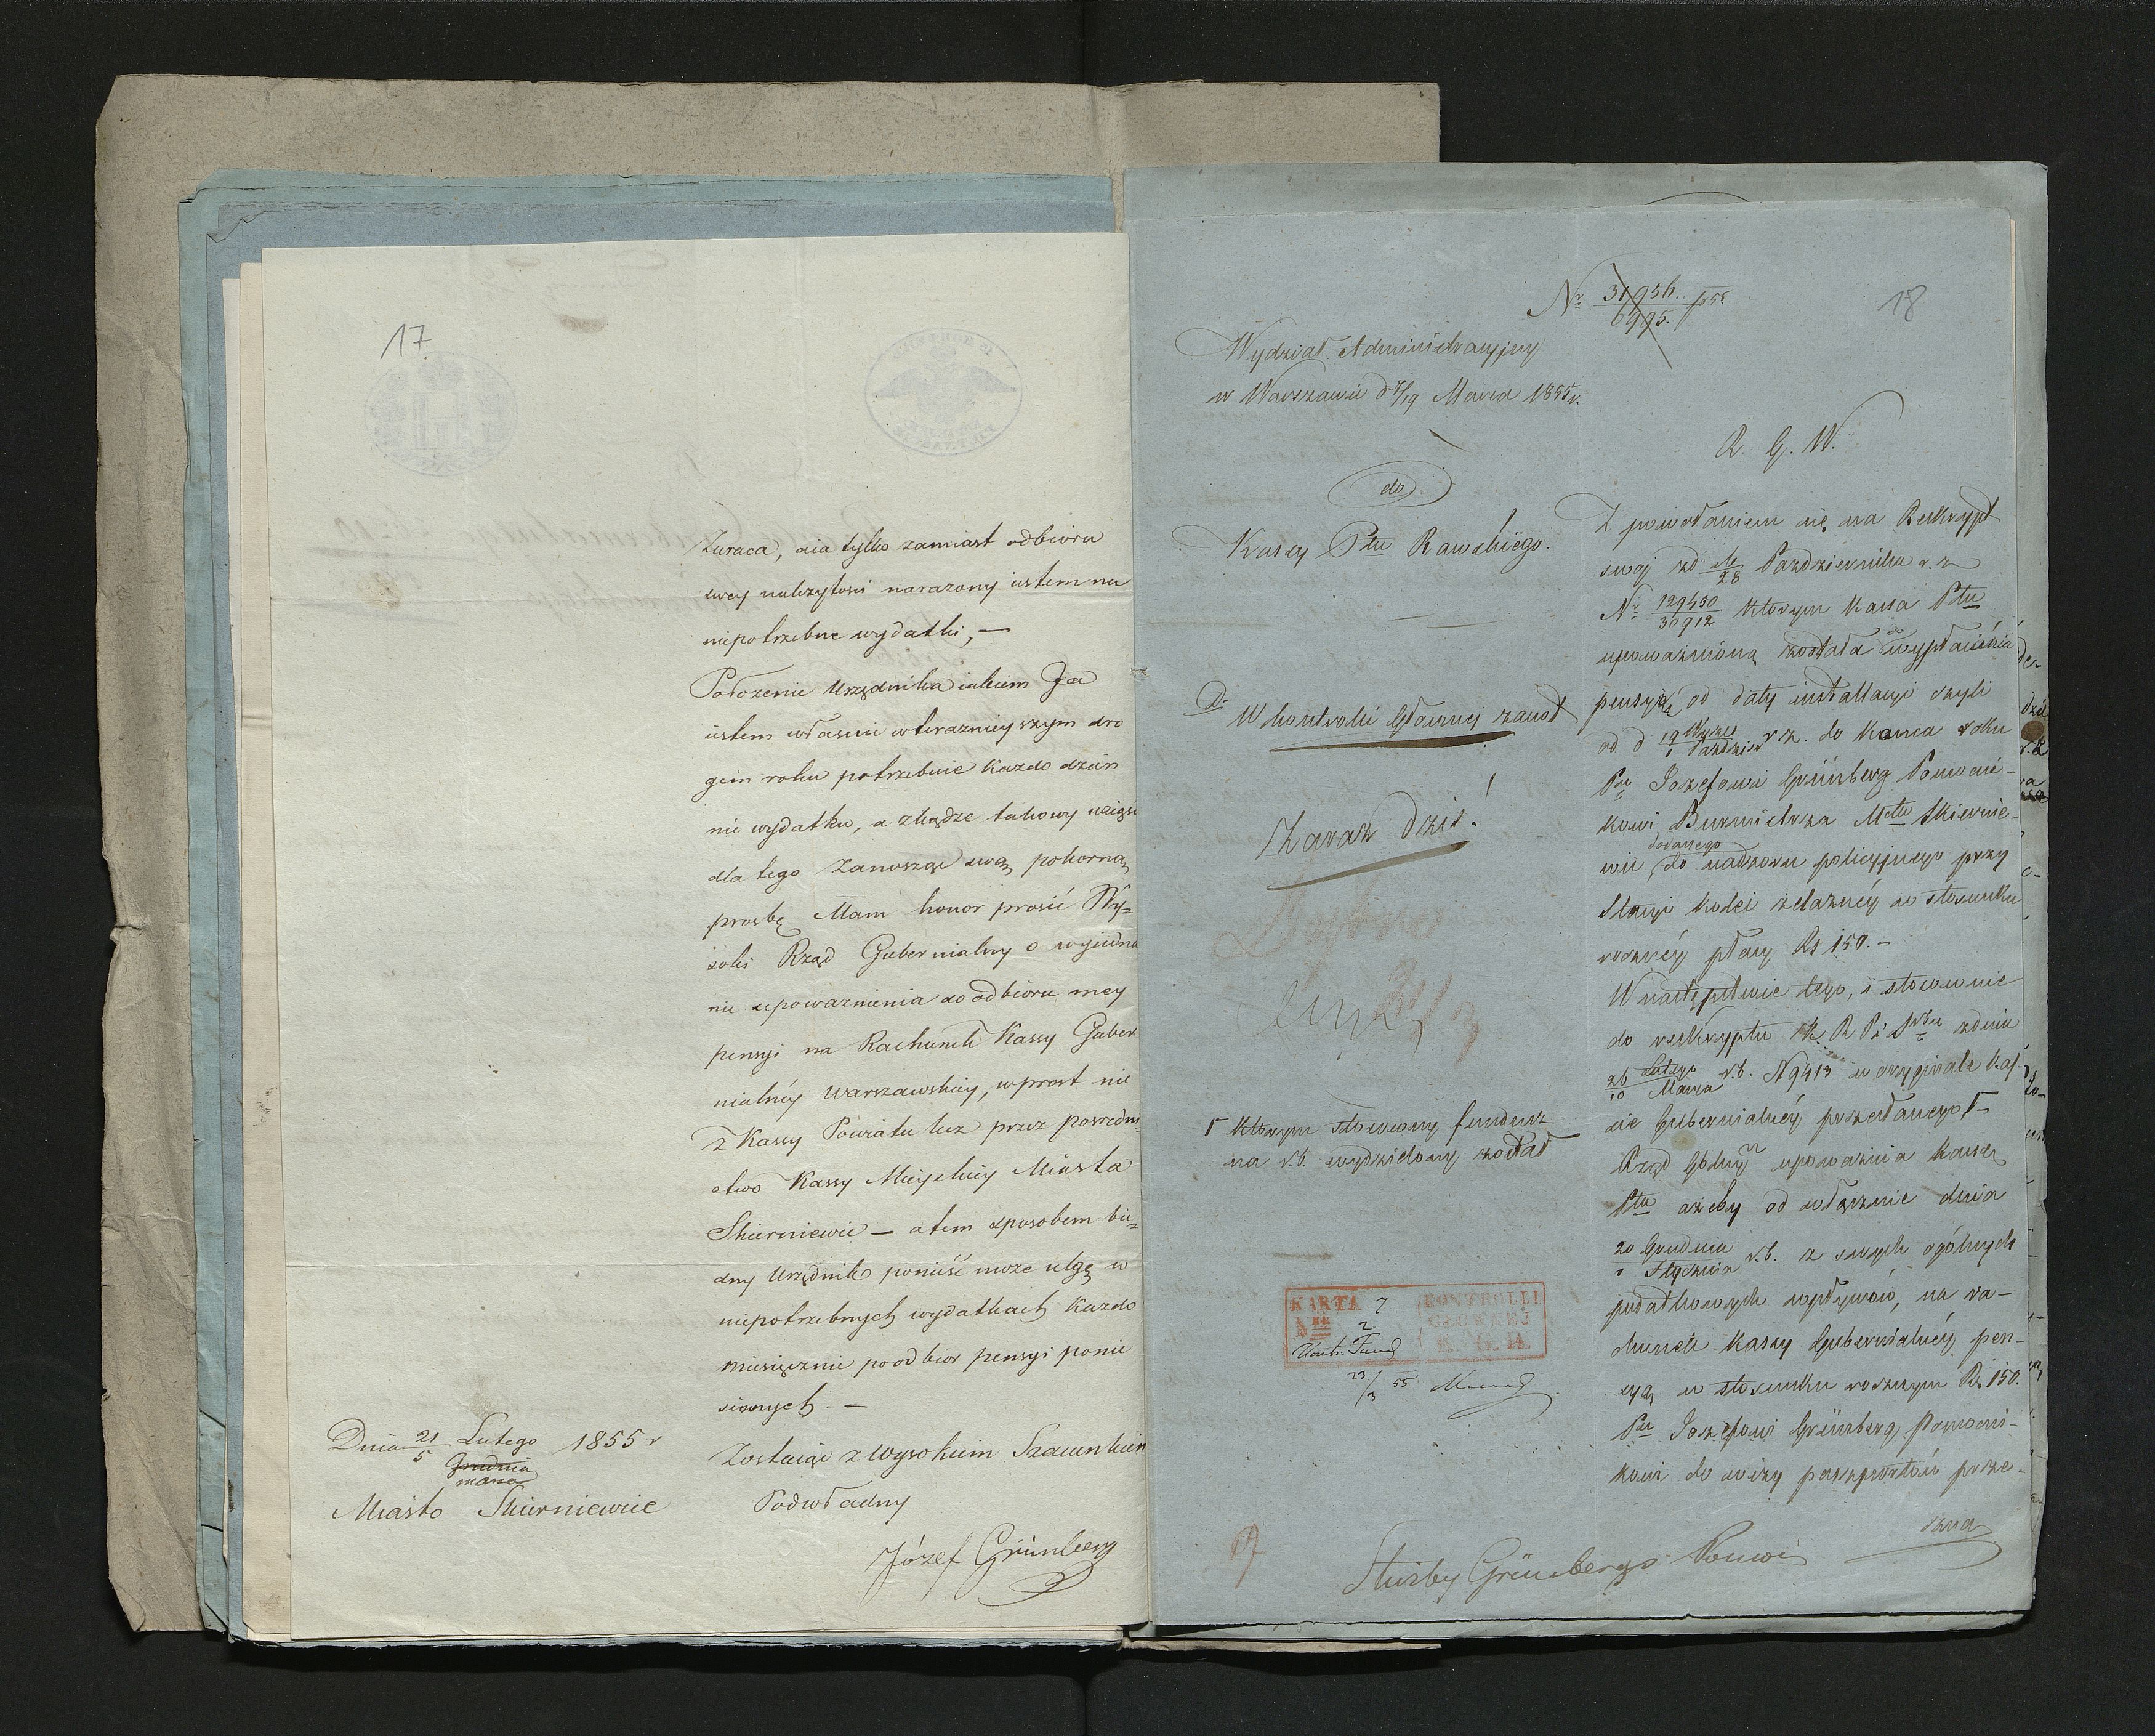 17.
zwraca, nia tylko zamiast odbioru
swey należytości narazony iestem na
niepotrzebne wydatki, —
Położenie Urzędnika iakiem Ja
iestem własnie wterazniey szym dro
gim roku potrzebuie Kazdo dzien
nie wydatku, a zkądze takowy wziąść
dla tego Zanosząc swą pokorną
prozbę Mam honor prosić Wy=
soki Rząd Gubernialny o wyiedna
nie upoważnienia do odbioru mey
pensyi na Rachunek Kassy Guber
nialnéy Warszawskiey, wprost nie
z Kassy Powiatu lecz przez posredni=
ctwo Kassy Mieyskiey Miasta
Skierniewic — a tem sposobem bie=
dny Urzędnik ponieść może ulgę w
niepotrzebnych wydatkach Kazdo
miesięcznie po odbior pensyi ponie
sionych. —
Zostaiąc z wysokiem Szacunkiem
Podwładny
Józef Grünberg
Dnia 21/5 Lutego 1855 r
Grudnia
marca
Miasto Skierniewice
18
Nr 31956/695. p 55
Wydział Administracyjny
w Warszawie d 7/19 Marca 1855 r.
do
Kassy Ptu Rawskiego.
D.
W kontroli Głównej zanot
Zaraz dziś!
Γ którym stosowny fundusz
na r.b. wydzielony został
KARTA 7
Nr 2
Kontr. Fund
KONTROLLI
GŁÓWNEJ
R. G. W.
23/3 55
R. G. W.
Z powołaniem się na Reskrypt
swoj zd 16/28 Pazdziernika r. z
Nr 129450/30912 którym Kassa Ptu
upoważnioną została do wypłacenia
pensyą od daty installacyi czyli
od d 19 Wrzes/1 Pazdzier r z. do Końca roku
Pu Jozefowi Grünberg Pomocni-
kowi Burmistrza Mta Skiernie-
wic, dodanego do nadzoru policyjnego przy
Stacyi kolei żelaznéy w stosunku
rocznéy płacy Rs 150. —
W następstwie tego, i stosownie
do reskryptu K R P i S zdnia
26 Lutego/10 Marca r.b. N 9413 w oryginale Kas-
sie Gubernialnéy przesłanego Γ
Rząd Gbdny upoważnia Kassę
Ptu ażeby od włącznie dnia
20 Grudnia/1 Stycznia r.b. z swych ogólnych
podatkowych wpływów, na ra-
chunek Kassy Gubernialnéy pen-
syą w stosunku rocznym Rs 150.
Pu Jozefowi Grünberg Pomocni-
kowi do wizy paszportów prze-
Służby Grünbergo Pomoc